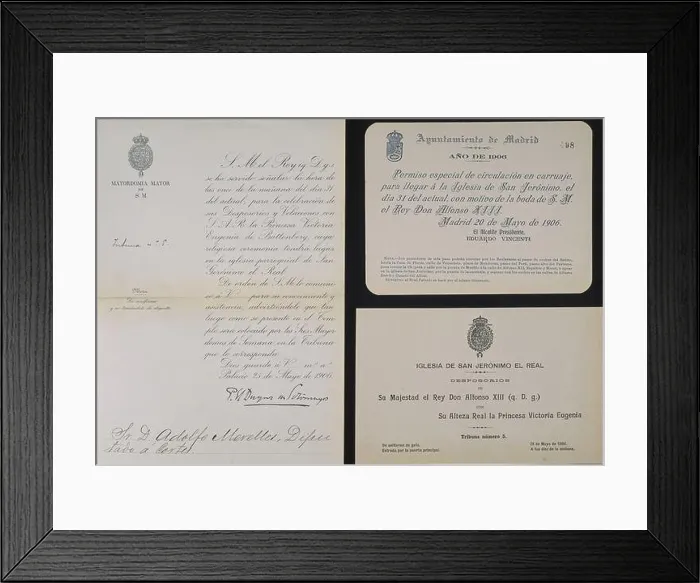 MAYORDOMIA MAYOR
DE
S. M.
Tribuna n.º 5
S. M. el Rey q. D. g.
se ha servido señalar la hora de
las once de la mañana del dia 31
del actual, para la celebración de
sus Desposorios y Velaciones con
S. A. R. la Princesa Victoria
Eugenia de Battenberg, cuya
religiosa ceremonia tendrá lugar
en la iglesia parroquial de San
Gerónimo el Real
De orden de S. M. lo comuni-
co á V. para su conocimiento y
asistencia, advirtiéndole que tan
luego como se presente en el Tem-
plo será colocado por los Sres. Mayor-
domos de Semana, en la Tribuna
que le corresponda
Dios guarde á V. m.s a.s
Palacio 23 de Mayo de 1906
Sr. D. Adolfo Merelles, Dipu-
tado a Cortes
Ayuntamiento de Madrid
98
AÑO DE 1906
Permiso especial de circulación en carruaje,
para llegar á la Iglesia de San Jerónimo, el
día 31 del actual, con motivo de la boda de S. M.
el Rey Don Alfonso XIII.
Madrid 20 de Mayo de 1906.
El Alcalde Presidente,
EDUARDO VINCENTI
IGLESIA DE SAN JERÓNIMO EL REAL
DESPOSORIOS
DE
Su Majestad el Rey Don Alfonso XIII (q. D. g.)
CON
Su Alteza Real la Princesa Victoria Eugenia
Tribuna número 5.
De uniforme de gala.
Entrada por la puerta principal.
de Mayo de 1906.
A las diez de la mañana.